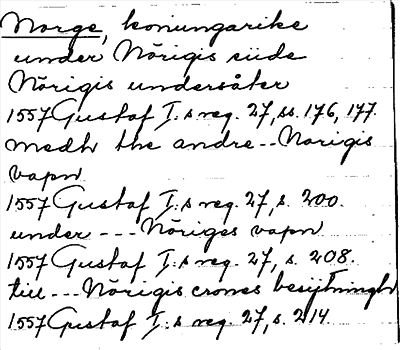 Norge, konungarike
under Nőrigis siide
Nőrigis undersåter
1557 Gustaf I:s reg. 27, ss. 176, 177.
medh the andre -- Norigis
vapn
1557 Gustaf I:s reg. 27, s. 200.
under --- Nőriges vapn
1557 Gustaf I:s reg. 27, s. 208.
till --- Nőrigis crones besijttningh
1557 Gustaf I:s reg. 27, s. 214.